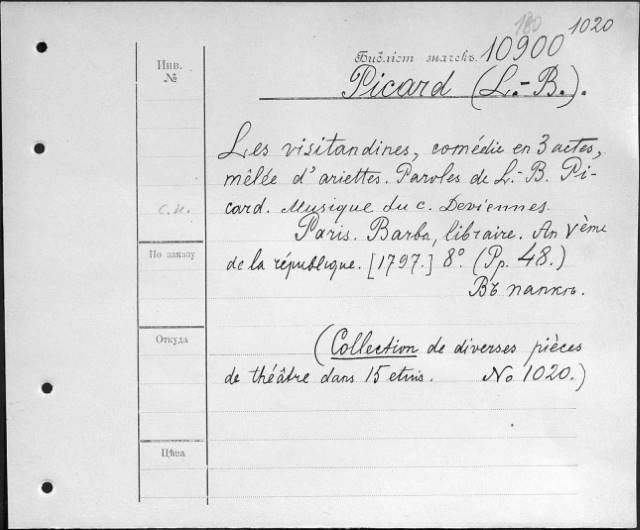 180 1020
Библіот значекъ 10900
Инв.
№
Picard (L.-B.).
Les visitandines, comédie en 3 actes,
mêlée d'ariettes. Paroles de L.-B. Pi-
card. Musique du c. Deviennes.
С.К.
Paris. Barba, libraire. An Vème
По заказу
de la république. [1797.] 8º. (Pp. 48.)
Въ папкѣ.
Откуда
(Collection de diverses pièces
de théâtre dans 15 etuis. No 1020.)
Цѣна